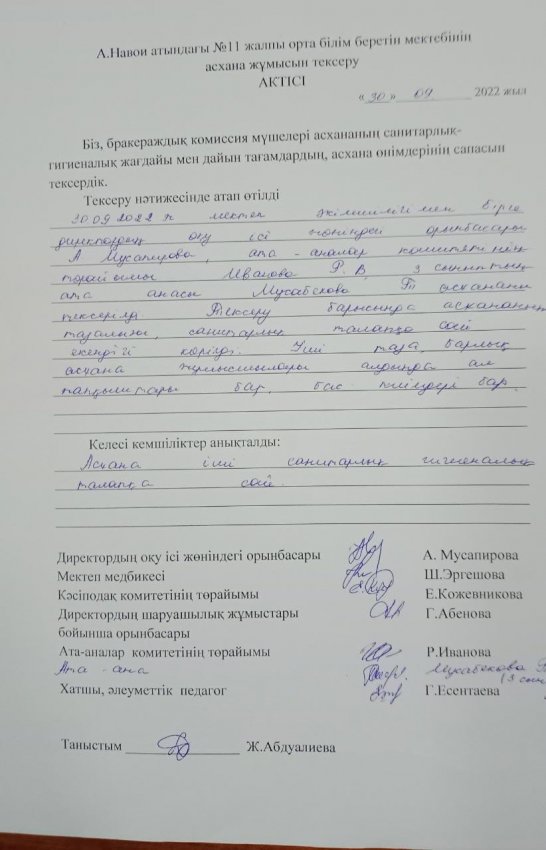 А.Навои атындағы №11 жалпы орта білім беретін мектебінің
асхана жұмысын тексеру
АКТІСІ
«30» 09 2022 жыл
Біз, бракераждық комиссия мүшелері асхананың санитарлық-
гигиеналық жағдайы мен дайын тағамдардың, асхана өнімдерінің сапасын
тексердік.
Тексеру нәтижесінде атап өтілді
30 09 2022 ж мектеп әкімшілігі мен бірге
директордың оқу ісі жөніндегі орынбасары
А Мусапирова, ата - аналар комитетінің
төрайымы Иванова Р. В, 3 сыныптың
ата анасы Мусабекова асхананы
тексерілді Тексеру барысында асхананың
тазалығы, санитарлық талапқа сай
екендігі көрілді. Іші таза, барлық
асхана жұмысшылары алдында ал
бар, бас киімдері бар.
Келесі кемшіліктер анықталды:
Асхана іші санитарлық гигиеналық
талапқа сай.
Директордың оқу ісі жөніндегі орынбасары А. Мусапирова
Мектеп медбикесі Ш.Эргешова
Кәсіподақ комитетінің төрайымы Е.Кожевникова
Директордың шаруашылық жұмыстары Г.Абенова
бойынша орынбасары
Ата-аналар комитетінің төрайымы Р.Иванова
Ата - ана Мусабекова
(3 сын
Хатшы, әлеуметтік педагог Г.Есентаева
Таныстым Ж.Абдуалиева